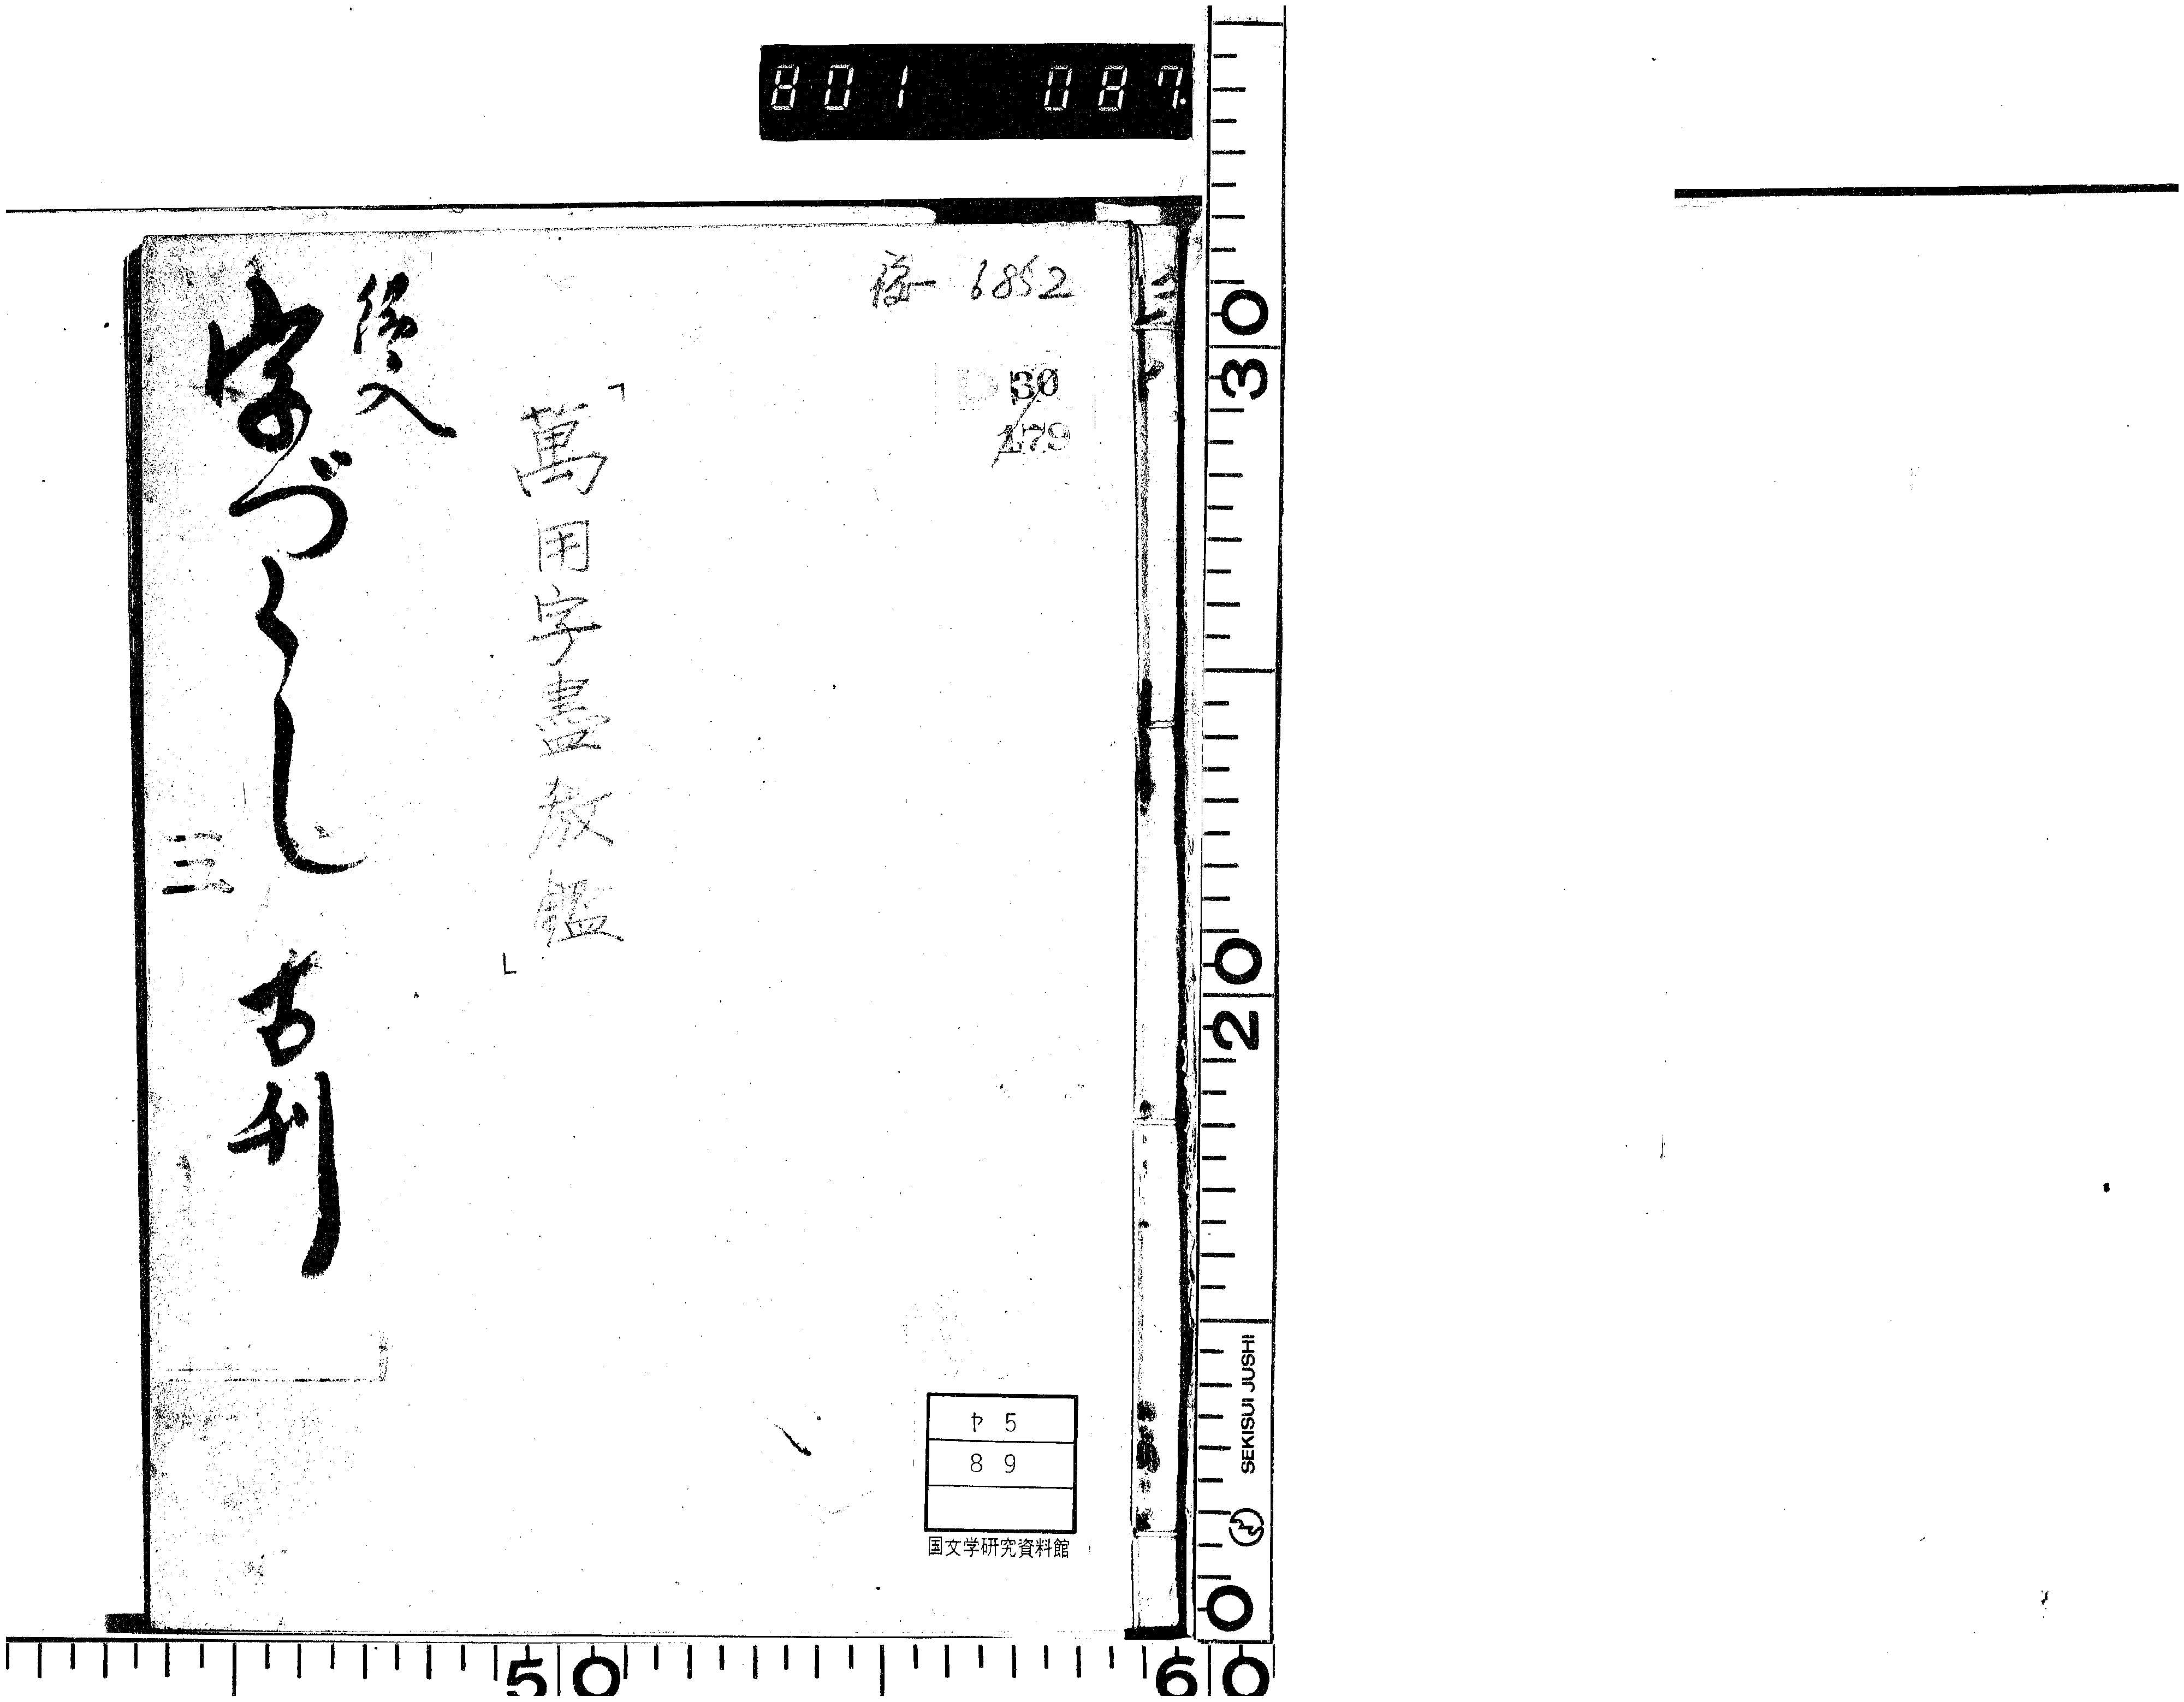 801 087.
6852
30
179
「萬用字盡教鑑」
絵入
字づくし 古刊
三
ヤ5
89
国文学研究資料館
30
20
SEKISUI JUSHI
0
50
60